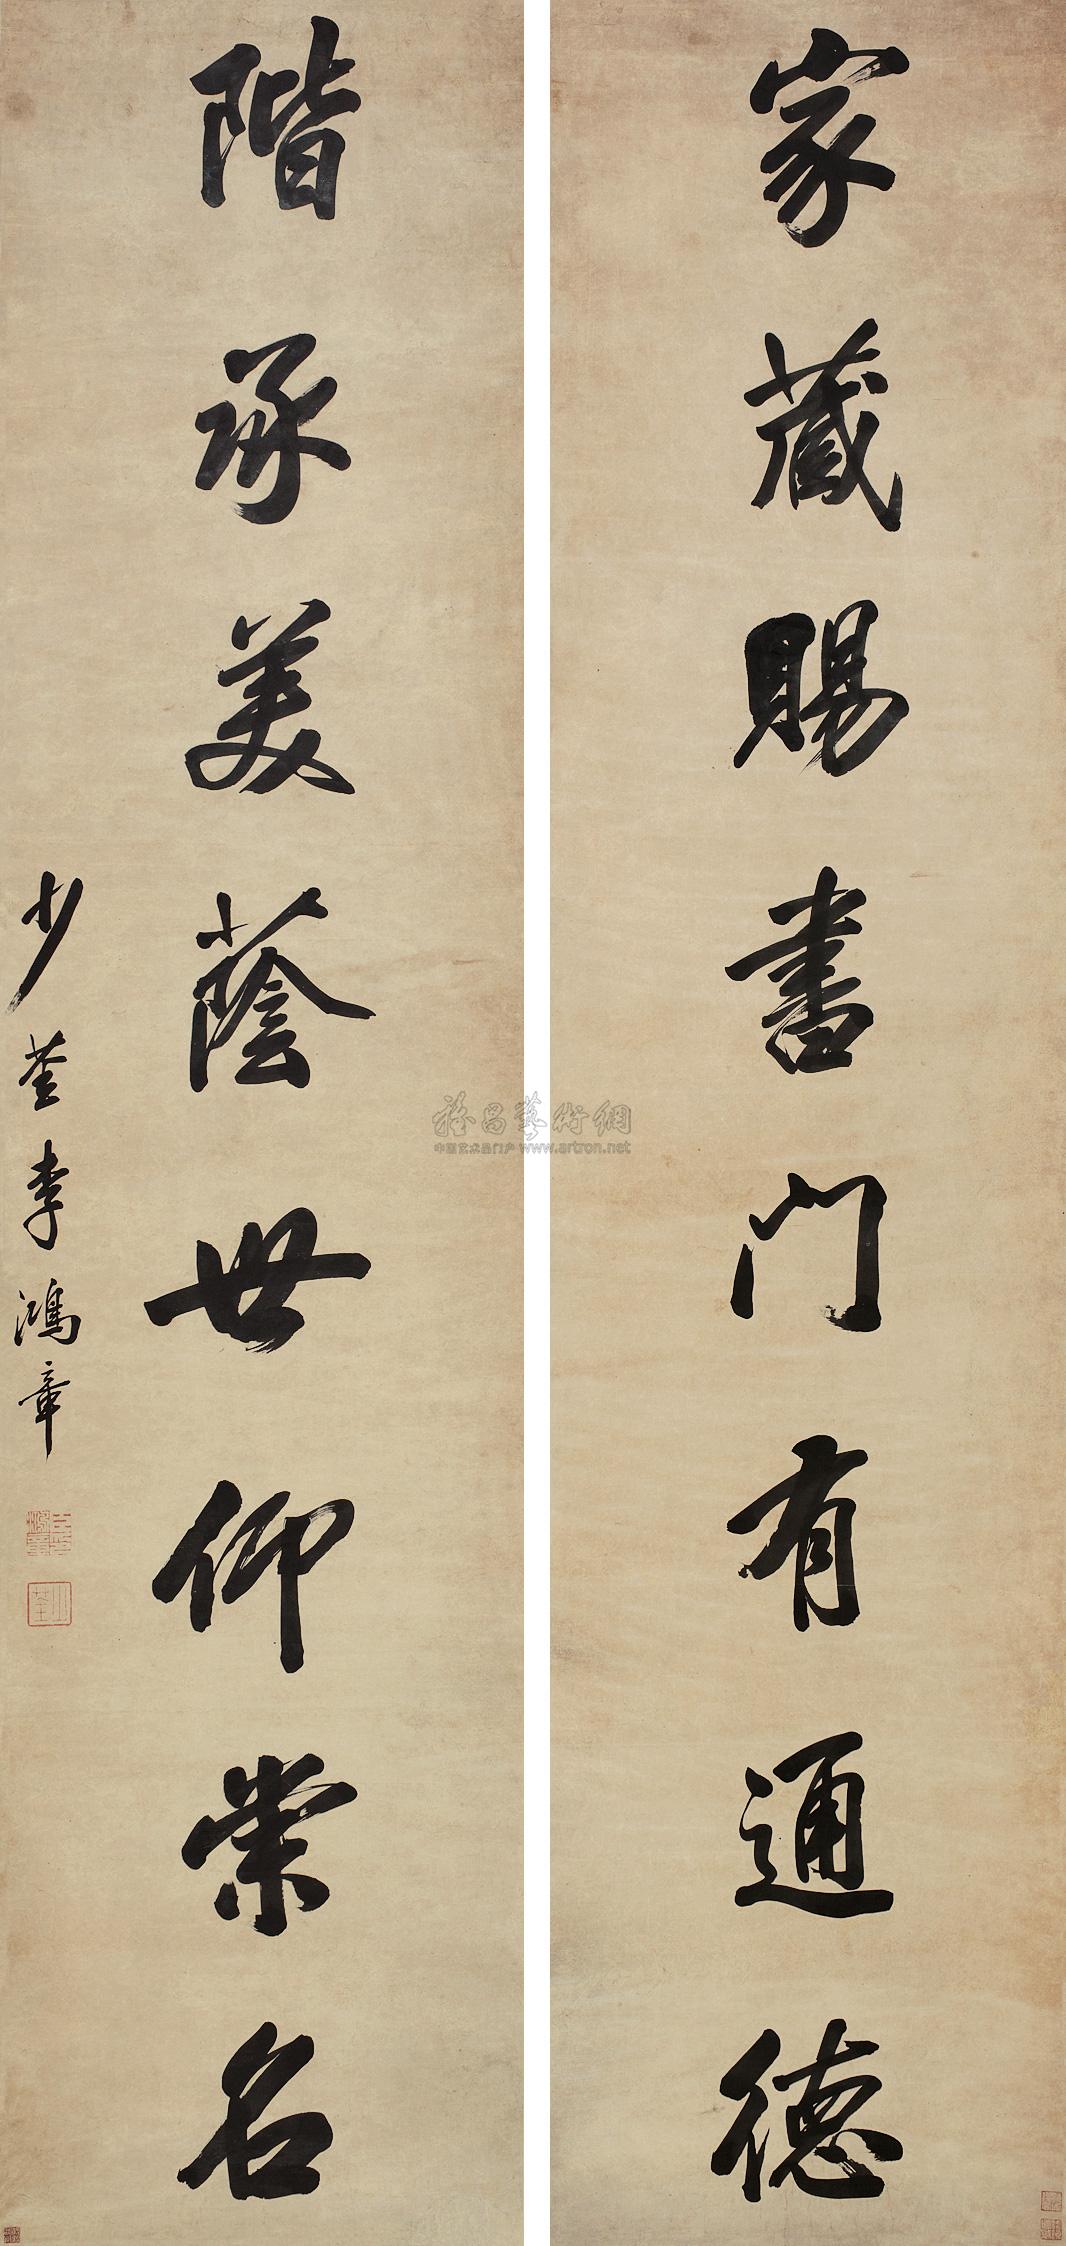 家藏賜書門有通德
階承美蔭世仰崇名
少荃李鴻章
雅昌藝術網
中国艺术品门户 www.artron.net